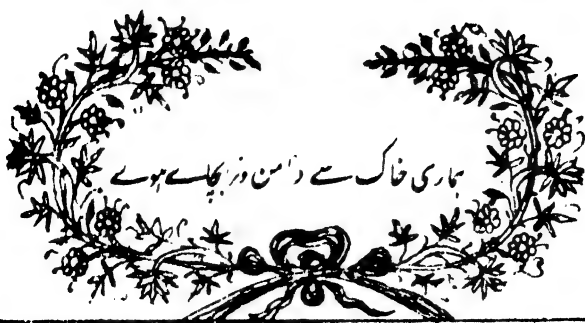 ہماری خاک سے دامن ذرا بچاے ہوے